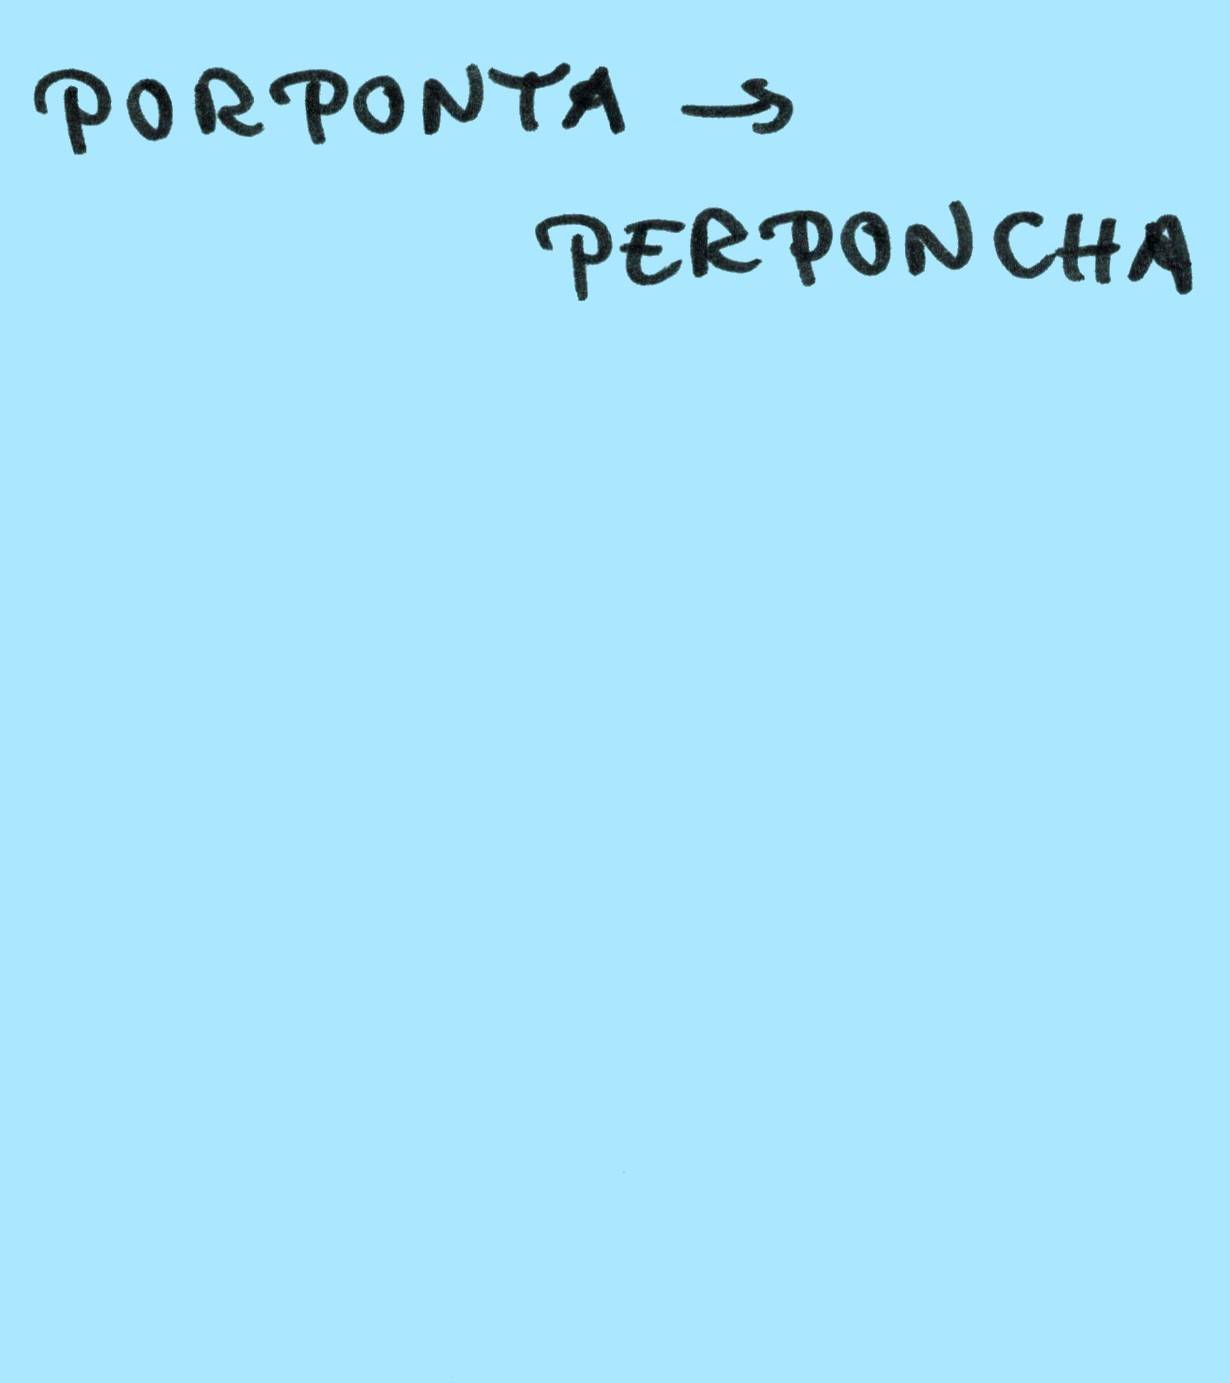 PORPONTA →
PERPONCHA